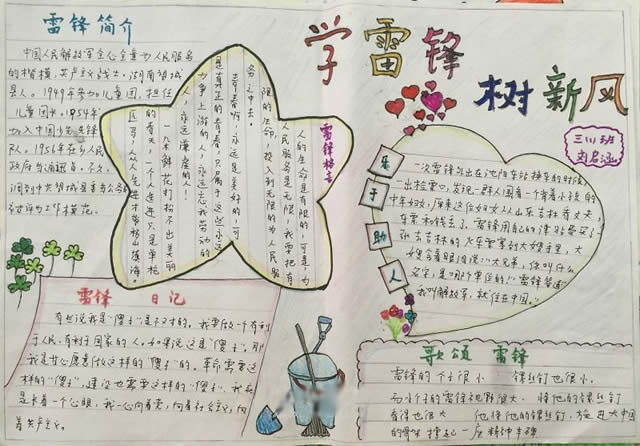 雷锋简介
中国人民解放军全心全意为人民服务
的楷模,共产主义战士,湖南望城
县人。1949年参加儿童团,担任
儿童团长。1954年
加入中国少年先锋
队。1956年在乡人民
政府当通讯员,不久,
调到中共望城县委当公务
雷锋格言
人的生命是有限的,可是,为
人民服务是无限,我要把有
限的生命,投入到无限的为人民服
务之中去。
青春啊,永远是美好的,可
是真正的青春,只属于这些永远
力争上游的人,永远忘我劳动的
人,永远谦虚的人!
一朵鲜花打扮不出美丽
的春天,一个人先进只是单枪
匹马,众人先进才能移山填海。
雷锋 日记
有些人说我是“傻子”是不对的。我要做一个有利
于人民,有利于国家的人。如果说这是“傻子”,那
我是甘心愿意做这样的“傻子”的。革命需要这
样的“傻子”,建设也需要这样的“傻子”。我
是长着一个心眼,我一心向着党,向着社会主义,向
着共产主义。
学雷锋
树新风
三(1)班
乐于助人
一次雷锋外出在沈阳车站换车的时候,
一出检票口,发现一群人围看一个背着小孩的
中年妇女,原来这位妇女从山东去吉林看丈夫,
车票和钱丢了。雷锋用自己的津贴费买了一
张去吉林的火车票塞到大嫂手里,大
嫂含着眼泪说:“大兄弟,你叫什么
名字,是哪个单位的!”雷锋笑道:
“我叫解放军,就住在中国。”
歌颂 雷锋
雷锋的个子很小 螺丝钉也很小。
而小个的雷锋视野很大, 将他的螺丝钉
看得也很大 他将他的螺丝钉,旋进大中国